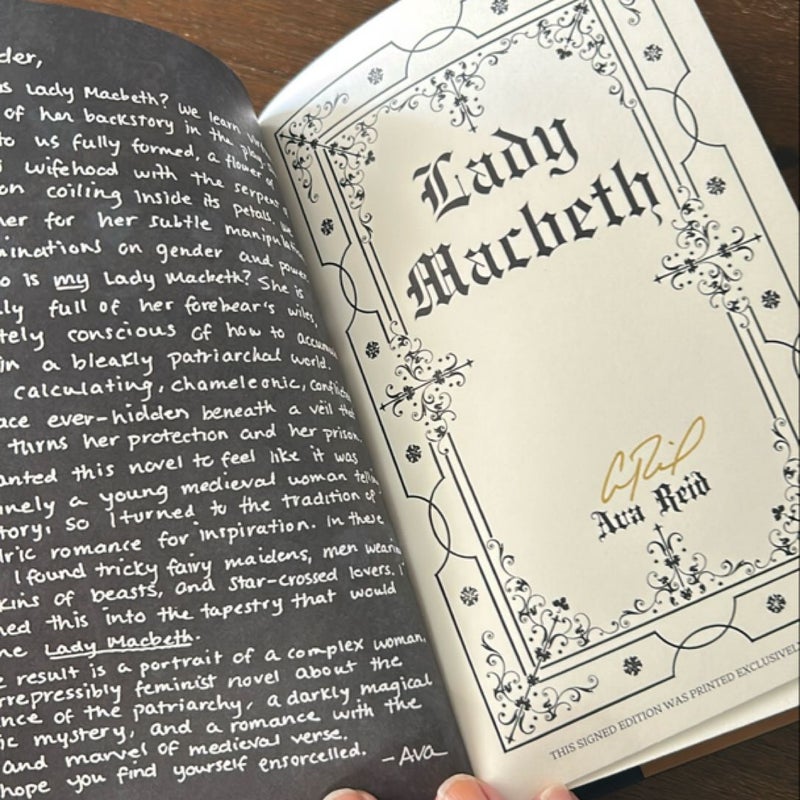 der,
s Lady Macbeth? We learn
of her backstory in the play
to us fully formed, a flower of
wifehood with the serpent
on coiling inside its petals. We
her for her subtle
inations on gender and power
o is my Lady Macbeth? She is
ly full of her forebear's wiles,
tely conscious of how to
in a bleakly patriarchal world.
calculating, chameleonic,
ace ever-hidden beneath a veil that
turns her protection and her prison.
anted this novel to feel like it was
inely a young medieval woman
tory, so I turned to the tradition of
ric romance for inspiration. In these
I found tricky fairy maidens, men
kins of beasts, and star-crossed lovers. I
ned this into the tapestry that would
me Lady Macbeth.
e result is a portrait of a complex woman,
rrepressibly feminist novel about the
nce of the patriarchy, a darkly magical
ic mystery, and a romance with the
and marvel of medieval verse.
hope you find yourself ensorcelled. -Ava
Lady
Macbeth
Ava Reid
THIS SIGNED EDITION WAS PRINTED EXCLUSIVELY